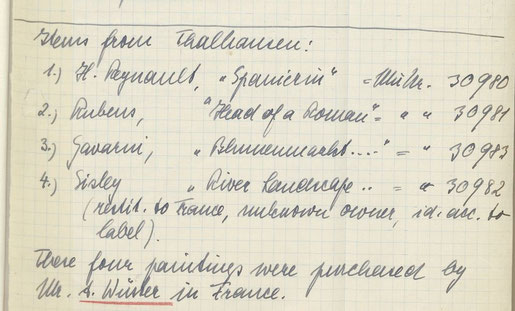 Items from Thalhausen:
1.) H. Regnault, „Spanierin" = MüNr. 30980
2.) Rubens, "Head of a Roman" = " " 30981
3.) Gavarni, „Blumenmarkt...." = " 30983
4.) Sisley „River Landscape .. = " 30982
(restit. to France, unknown owner, id. acc. to
label).
These four paintings were purchased by
Mr. A. Wüster in France.